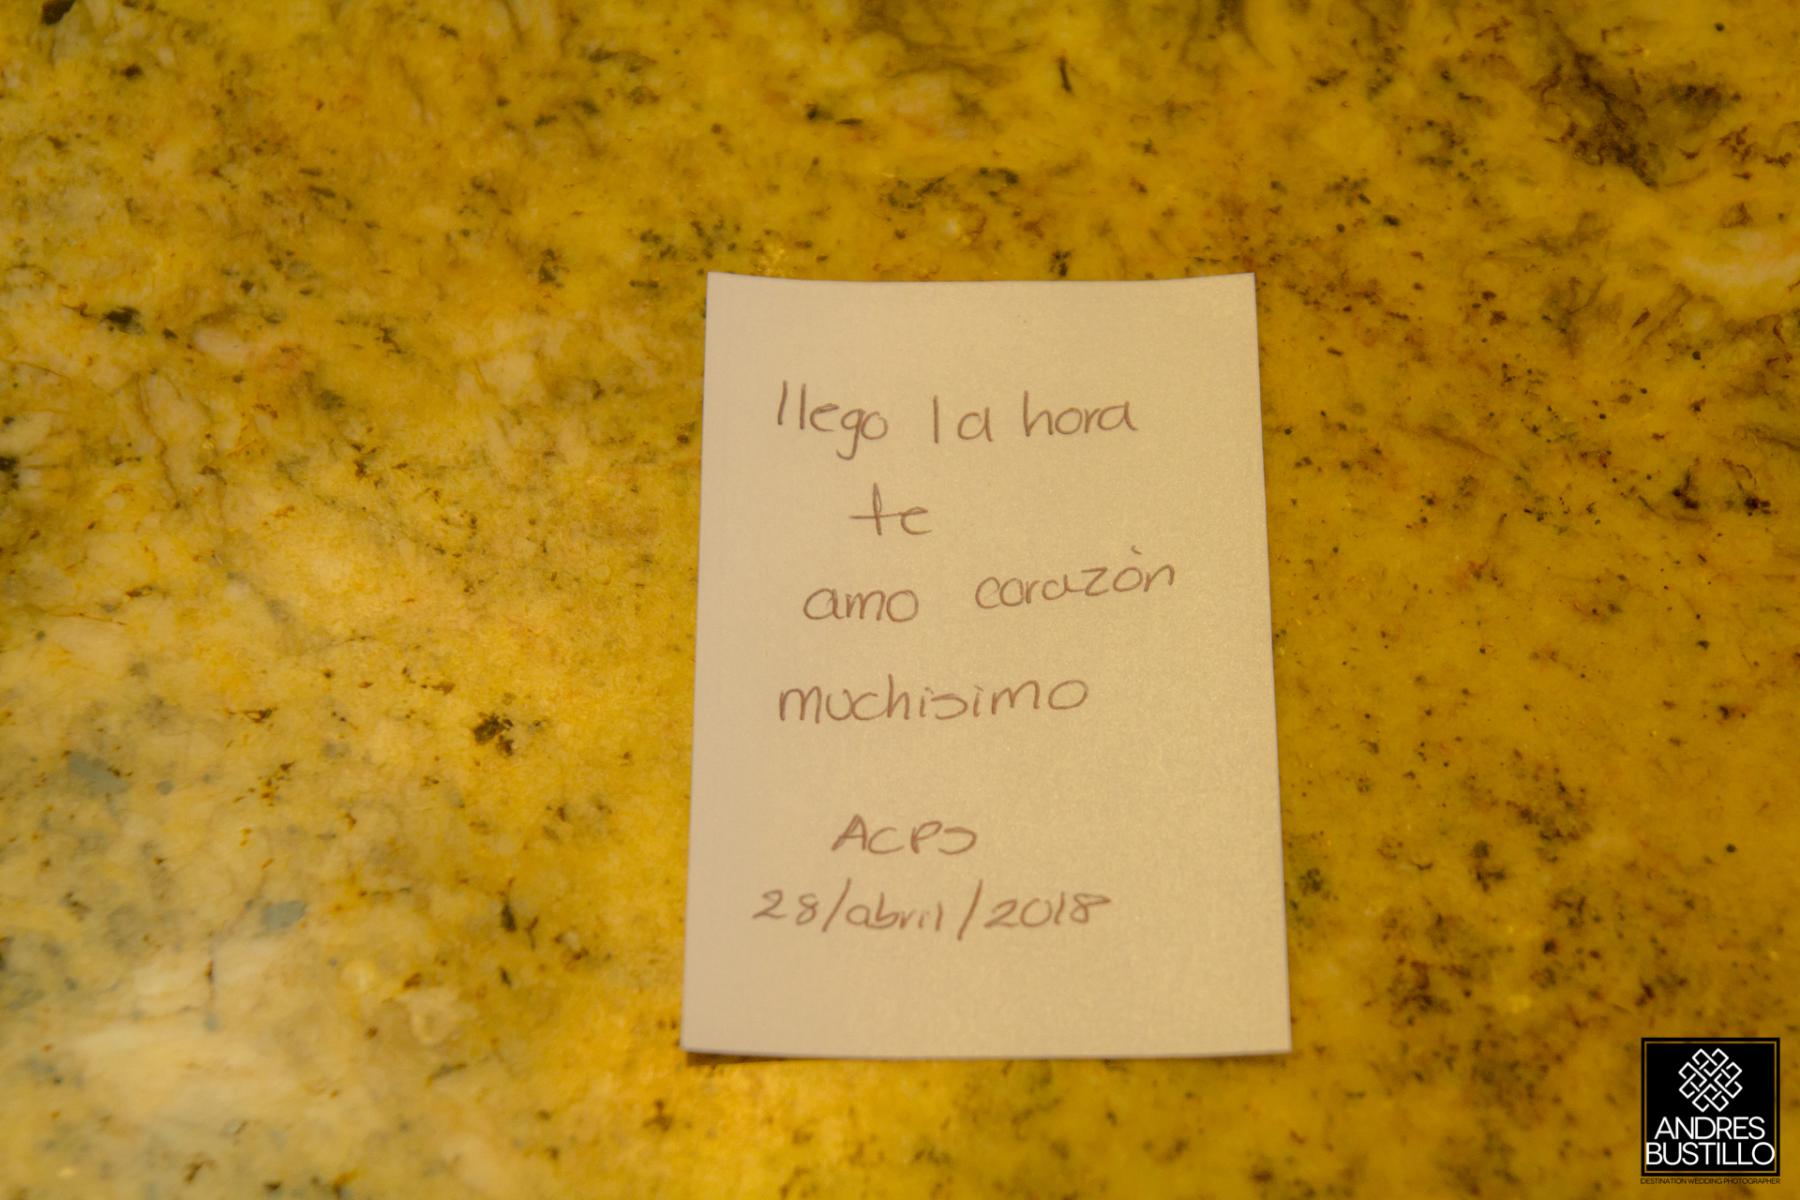 llego la hora
te
amo corazón
muchisimo
ACPS
28/abril/2018
ANDRES
BUSTILLO
DESTINATION WEDDING PHOTOGRAPHER